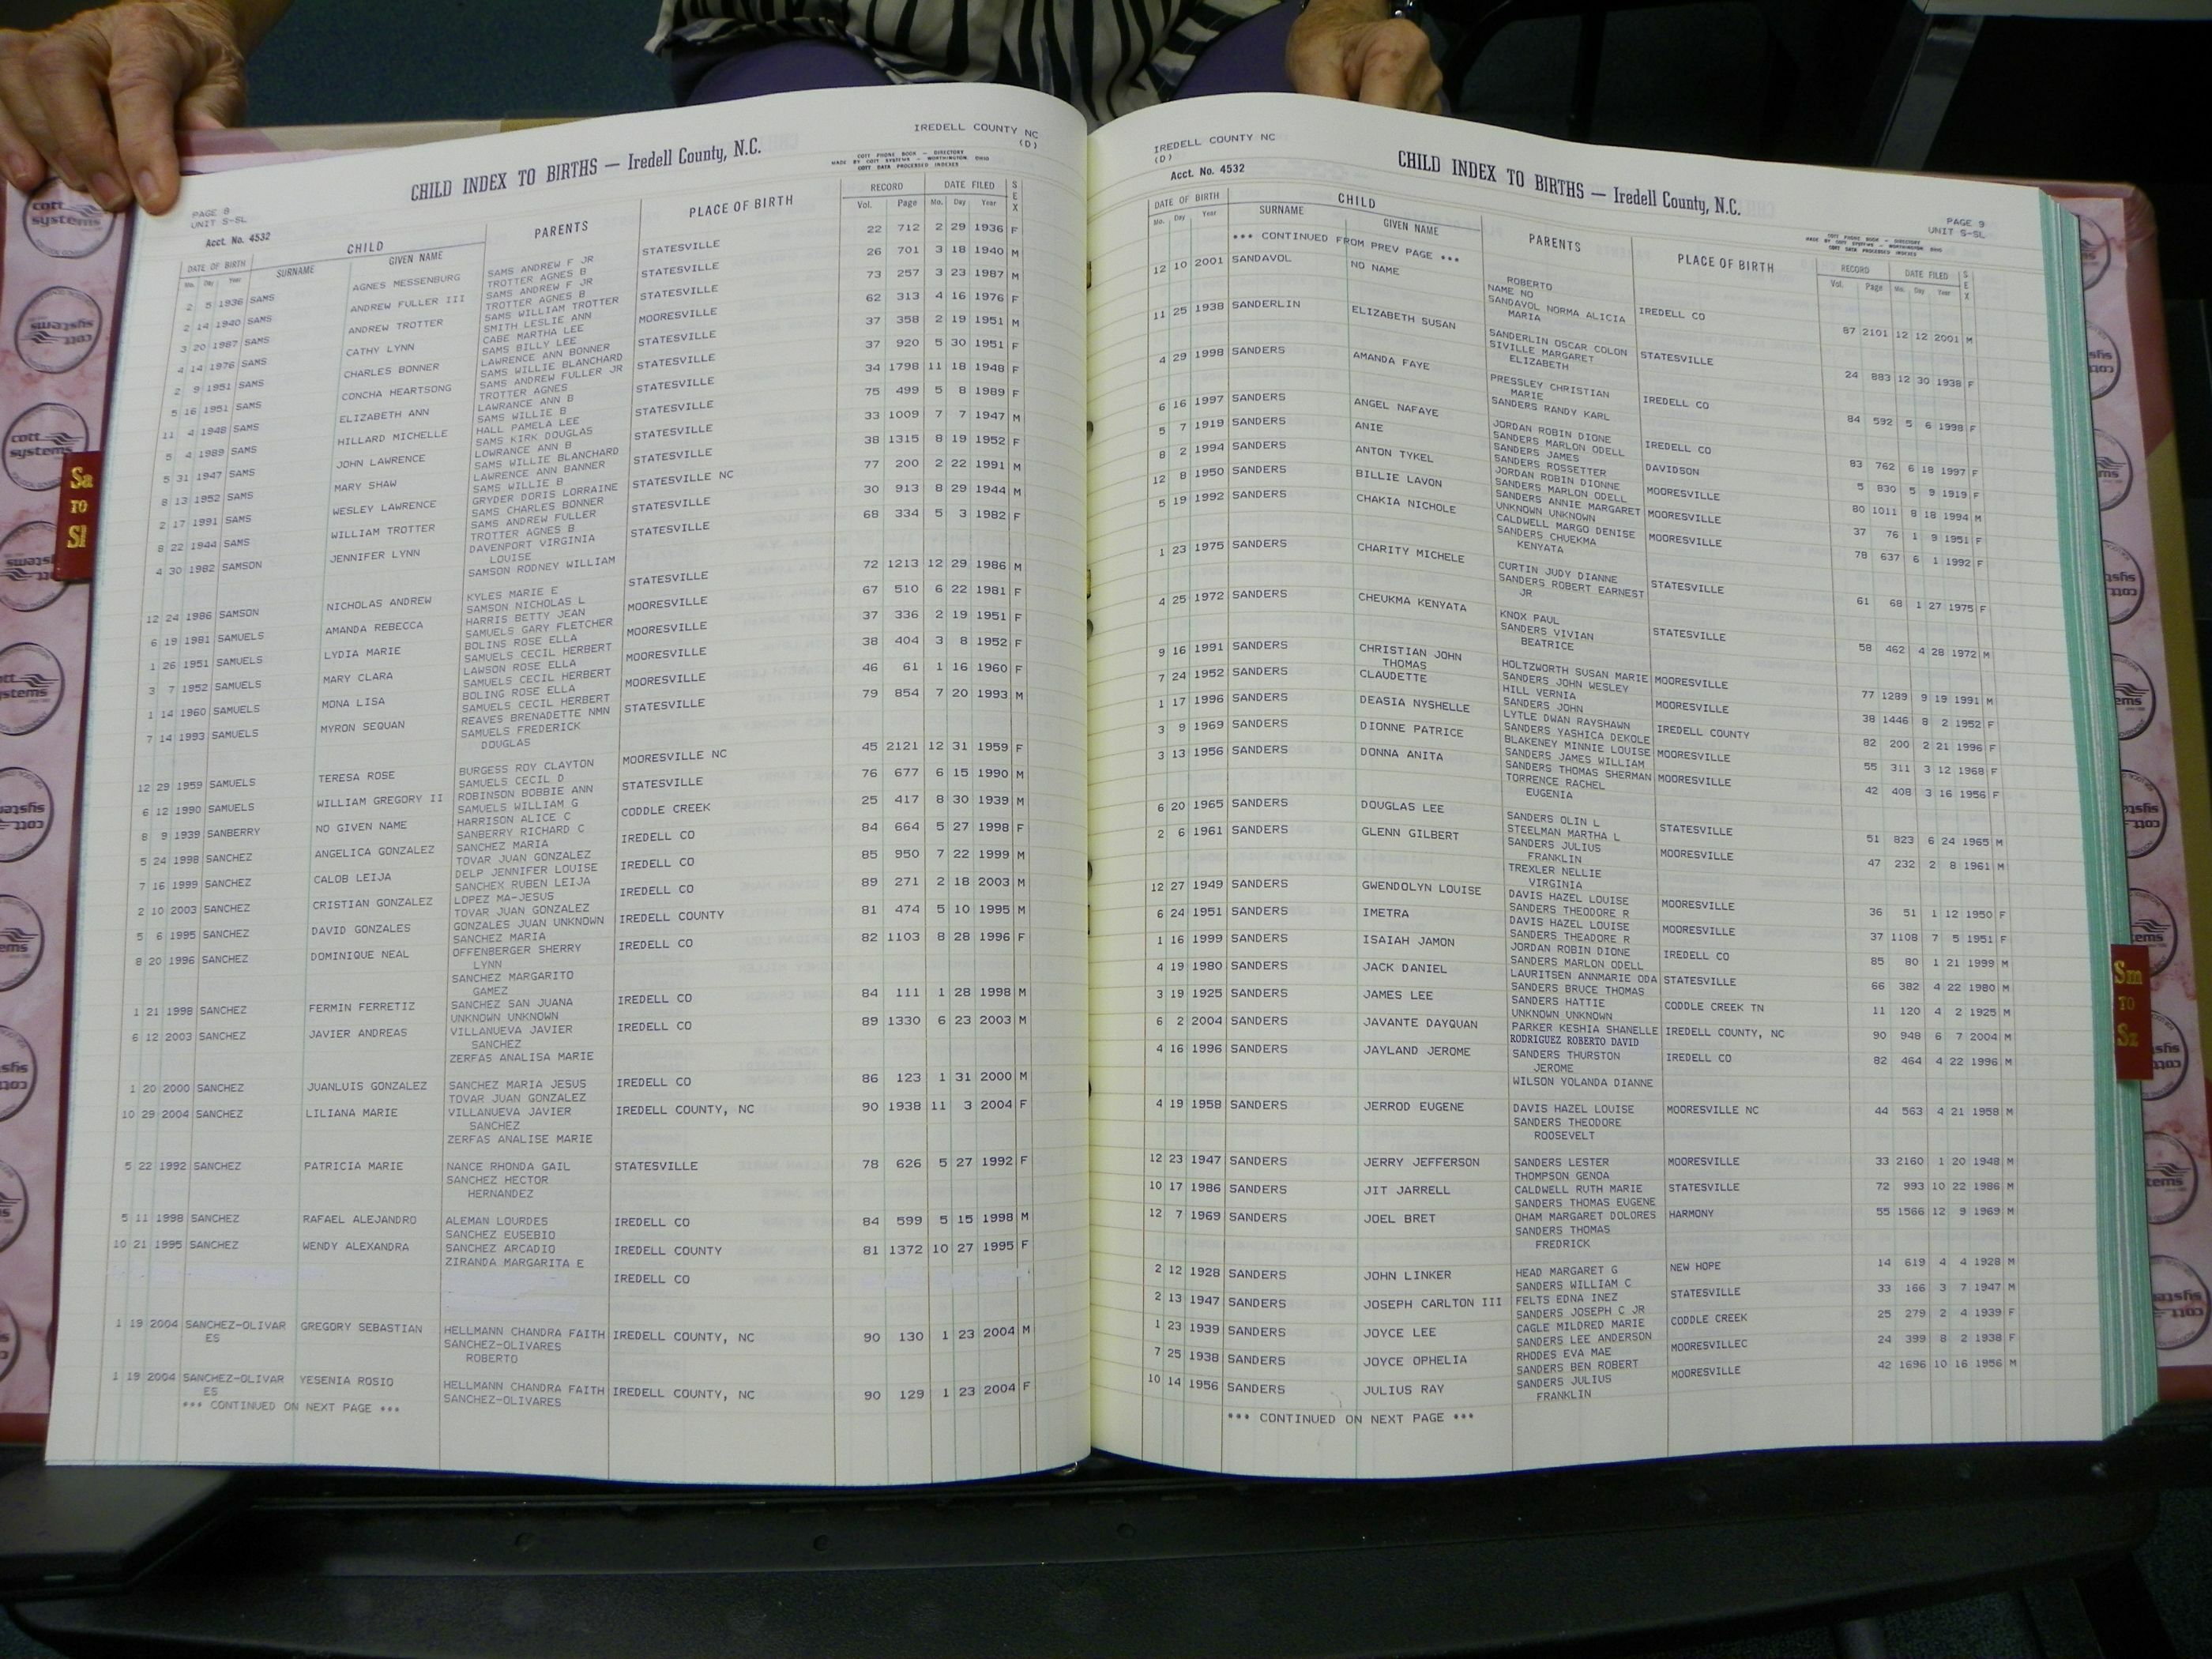 IREDELL COUNTY NC
(D)
CHILD INDEX TO BIRTHS — Iredell County, N.C.
COTT PHONE BOOK — DIRECTORY
MADE BY COTT SYSTEMS — WORTHINGTON, OHIO
COTT DATA PROCESSED INDEXES
PAGE 8
UNIT S-SL
Acct. No. 4532
DATE OF BIRTH CHILD PARENTS PLACE OF BIRTH RECORD DATE FILED SEX
Mo. Day Year SURNAME GIVEN NAME Vol. Page Mo. Day Year
2 5 1936 SAMS AGNES MESSENBURG SAMS ANDREW F JR STATESVILLE 22 712 2 29 1936 F
TROTTER AGNES B
2 14 1940 SAMS ANDREW FULLER III SAMS ANDREW F JR STATESVILLE 26 701 3 18 1940 M
TROTTER AGNES B
3 20 1987 SAMS ANDREW TROTTER SAMS WILLIAM TROTTER STATESVILLE 73 257 3 23 1987 M
SMITH LESLIE ANN
4 14 1976 SAMS CATHY LYNN CABE MARTHA LEE MOORESVILLE 62 313 4 16 1976 F
SAMS BILLY LEE
2 9 1951 SAMS CHARLES BONNER LAWRENCE ANN BONNER STATESVILLE 37 358 2 19 1951 M
SAMS WILLIE BLANCHARD
5 16 1951 SAMS CONCHA HEARTSONG SAMS ANDREW FULLER JR STATESVILLE 37 920 5 30 1951 F
TROTTER AGNES
11 4 1948 SAMS ELIZABETH ANN LAWRANCE ANN B 34 1798 11 18 1948 F
SAMS WILLIE B
5 4 1989 SAMS HILLARD MICHELLE HALL PAMELA LEE STATESVILLE 75 499 5 8 1989 F
SAMS KIRK DOUGLAS
5 31 1947 SAMS JOHN LAWRENCE LOWRANCE ANN B STATESVILLE 33 1009 7 7 1947 M
SAMS WILLIE BLANCHARD
8 13 1952 SAMS MARY SHAW LAWRENCE ANN BANNER STATESVILLE 38 1315 8 19 1952 F
SAMS WILLIE B
2 17 1991 SAMS WESLEY LAWRENCE GRYDER DORIS LORRAINE STATESVILLE NC 77 200 2 22 1991 M
SAMS CHARLES BONNER
8 22 1944 SAMS WILLIAM TROTTER SAMS ANDREW FULLER STATESVILLE 30 913 8 29 1944 M
TROTTER AGNES B
4 30 1982 SAMSON JENNIFER LYNN DAVENPORT VIRGINIA STATESVILLE 68 334 5 3 1982 F
LOUISE
SAMSON RODNEY WILLIAM
12 24 1986 SAMSON NICHOLAS ANDREW KYLES MARIE E STATESVILLE 72 1213 12 29 1986 M
SAMSON NICHOLAS L
6 19 1981 SAMUELS AMANDA REBECCA HARRIS BETTY JEAN MOORESVILLE 67 510 6 22 1981 F
SAMUELS GARY FLETCHER
1 26 1951 SAMUELS LYDIA MARIE BOLINS ROSE ELLA MOORESVILLE 37 336 2 19 1951 F
SAMUELS CECIL HERBERT
3 7 1952 SAMUELS MARY CLARA LAWSON ROSE ELLA MOORESVILLE 38 404 3 8 1952 F
SAMUELS CECIL HERBERT
1 14 1960 SAMUELS MONA LISA BOLING ROSE ELLA MOORESVILLE 46 61 1 16 1960 F
SAMUELS CECIL HERBERT
7 14 1993 SAMUELS MYRON SEQUAN REAVES BRENADETTE NMN STATESVILLE 79 854 7 20 1993 M
SAMUELS FREDERICK
DOUGLAS
12 29 1959 SAMUELS TERESA ROSE BURGESS ROY CLAYTON MOORESVILLE NC 45 2121 12 31 1959 F
SAMUELS CECIL D
6 12 1990 SAMUELS WILLIAM GREGORY II ROBINSON BOBBIE ANN STATESVILLE 76 677 6 15 1990 M
SAMUELS WILLIAM G
8 9 1939 SANBERRY NO GIVEN NAME HARRISON ALICE C CODDLE CREEK 25 417 8 30 1939 M
SANBERRY RICHARD C
5 24 1998 SANCHEZ ANGELICA GONZALEZ SANCHEZ MARIA IREDELL CO 84 664 5 27 1998 F
TOVAR JUAN GONZALEZ
7 16 1999 SANCHEZ CALOB LEIJA DELP JENNIFER LOUISE IREDELL CO 85 950 7 22 1999 M
SANCHEX RUBEN LEIJA
2 10 2003 SANCHEZ CRISTIAN GONZALEZ LOPEZ MA-JESUS IREDELL CO 89 271 2 18 2003 M
TOVAR JUAN GONZALEZ
5 6 1995 SANCHEZ DAVID GONZALES GONZALES JUAN UNKNOWN IREDELL COUNTY 81 474 5 10 1995 M
SANCHEZ MARIA
8 20 1996 SANCHEZ DOMINIQUE NEAL OFFENBERGER SHERRY IREDELL CO 82 1103 8 28 1996 F
LYNN
SANCHEZ MARGARITO
GAMEZ
1 21 1998 SANCHEZ FERMIN FERRETIZ SANCHEZ SAN JUANA IREDELL CO 84 111 1 28 1998 M
UNKNOWN UNKNOWN
6 12 2003 SANCHEZ JAVIER ANDREAS VILLANUEVA JAVIER IREDELL CO 89 1330 6 23 2003 M
SANCHEZ
ZERFAS ANALISA MARIE
1 20 2000 SANCHEZ JUANLUIS GONZALEZ SANCHEZ MARIA JESUS IREDELL CO 86 123 1 31 2000 M
TOVAR JUAN GONZALEZ
10 29 2004 SANCHEZ LILIANA MARIE VILLANUEVA JAVIER IREDELL COUNTY, NC 90 1938 11 3 2004 F
SANCHEZ
ZERFAS ANALISE MARIE
5 22 1992 SANCHEZ PATRICIA MARIE NANCE RHONDA GAIL STATESVILLE 78 626 5 27 1992 F
SANCHEZ HECTOR
HERNANDEZ
5 11 1998 SANCHEZ RAFAEL ALEJANDRO ALEMAN LOURDES IREDELL CO 84 599 5 15 1998 M
SANCHEZ EUSEBIO
10 21 1995 SANCHEZ WENDY ALEXANDRA SANCHEZ ARCADIO IREDELL COUNTY 81 1372 10 27 1995 F
ZIRANDA MARGARITA E
IREDELL CO
1 19 2004 SANCHEZ-OLIVAR GREGORY SEBASTIAN HELLMANN CHANDRA FAITH IREDELL COUNTY, NC 90 130 1 23 2004 M
ES SANCHEZ-OLIVARES
ROBERTO
1 19 2004 SANCHEZ-OLIVAR YESENIA ROSIO HELLMANN CHANDRA FAITH IREDELL COUNTY, NC 90 129 1 23 2004 F
ES SANCHEZ-OLIVARES
*** CONTINUED ON NEXT PAGE ***
IREDELL COUNTY NC
(D)
Acct. No. 4532
CHILD INDEX TO BIRTHS — Iredell County, N.C.
PAGE 9
UNIT S-SL
COTT PHONE BOOK — DIRECTORY
MADE BY COTT SYSTEMS — WORTHINGTON, OHIO
COTT DATA PROCESSED INDEXES
DATE OF BIRTH CHILD PARENTS PLACE OF BIRTH RECORD DATE FILED SEX
Mo. Day Year SURNAME GIVEN NAME Vol. Page Mo. Day Year
*** CONTINUED FROM PREV PAGE ***
ROBERTO
12 10 2001 SANDAVOL NO NAME NAME NO IREDELL CO 87 2101 12 12 2001 M
SANDAVOL NORMA ALICIA
MARIA
11 25 1938 SANDERLIN ELIZABETH SUSAN SANDERLIN OSCAR COLON STATESVILLE 24 883 12 30 1938 F
SIVILLE MARGARET
ELIZABETH
4 29 1998 SANDERS AMANDA FAYE PRESSLEY CHRISTIAN IREDELL CO 84 592 5 6 1998 F
MARIE
SANDERS RANDY KARL
6 16 1997 SANDERS ANGEL NAFAYE JORDAN ROBIN DIONE IREDELL CO 83 762 6 18 1997 F
SANDERS MARLON ODELL
5 7 1919 SANDERS ANIE SANDERS JAMES DAVIDSON 5 830 5 9 1919 F
SANDERS ROSSETTER
8 2 1994 SANDERS ANTON TYKEL JORDAN ROBIN DIONNE MOORESVILLE 80 1011 8 18 1994 M
SANDERS MARLON ODELL
12 8 1950 SANDERS BILLIE LAVON SANDERS ANNIE MARGARET MOORESVILLE 37 76 1 9 1951 F
UNKNOWN UNKNOWN
5 19 1992 SANDERS CHAKIA NICHOLE CALDWELL MARGO DENISE MOORESVILLE 78 637 6 1 1992 F
SANDERS CHUEKMA
KENYATA
1 23 1975 SANDERS CHARITY MICHELE CURTIN JUDY DIANNE STATESVILLE 61 68 1 27 1975 F
SANDERS ROBERT EARNEST
JR
4 25 1972 SANDERS CHEUKMA KENYATA KNOX PAUL STATESVILLE 58 462 4 28 1972 M
SANDERS VIVIAN
BEATRICE
9 16 1991 SANDERS CHRISTIAN JOHN HOLTZWORTH SUSAN MARIE MOORESVILLE 77 1289 9 19 1991 M
THOMAS SANDERS JOHN WESLEY
7 24 1952 SANDERS CLAUDETTE HILL VERNIA MOORESVILLE 38 1446 8 2 1952 F
SANDERS JOHN
1 17 1996 SANDERS DEASIA NYSHELLE LYTLE DWAN RAYSHAWN IREDELL COUNTY 82 200 2 21 1996 F
SANDERS YASHICA DEKOLE
3 9 1969 SANDERS DIONNE PATRICE BLAKENEY MINNIE LOUISE MOORESVILLE 55 311 3 12 1968 F
SANDERS JAMES WILLIAM
3 13 1956 SANDERS DONNA ANITA SANDERS THOMAS SHERMAN MOORESVILLE 42 408 3 16 1956 F
TORRENCE RACHEL
EUGENIA
6 20 1965 SANDERS DOUGLAS LEE SANDERS OLIN L STATESVILLE 51 823 6 24 1965 M
STEELMAN MARTHA L
2 6 1961 SANDERS GLENN GILBERT SANDERS JULIUS MOORESVILLE 47 232 2 8 1961 M
FRANKLIN
TREXLER NELLIE
VIRGINIA
12 27 1949 SANDERS GWENDOLYN LOUISE DAVIS HAZEL LOUISE MOORESVILLE 36 51 1 12 1950 F
SANDERS THEODORE R
6 24 1951 SANDERS IMETRA DAVIS HAZEL LOUISE MOORESVILLE 37 1108 7 5 1951 F
SANDERS THEADORE R
1 16 1999 SANDERS ISAIAH JAMON JORDAN ROBIN DIONE IREDELL CO 85 80 1 21 1999 M
SANDERS MARLON ODELL
4 19 1980 SANDERS JACK DANIEL LAURITSEN ANNMARIE ODA STATESVILLE 66 382 4 22 1980 M
SANDERS BRUCE THOMAS
3 19 1925 SANDERS JAMES LEE SANDERS HATTIE CODDLE CREEK TN 11 120 4 2 1925 M
UNKNOWN UNKNOWN
6 2 2004 SANDERS JAVANTE DAYQUAN PARKER KESHIA SHANELLE IREDELL COUNTY, NC 90 948 6 7 2004 M
RODRIGUEZ ROBERTO DAVID
4 16 1996 SANDERS JAYLAND JEROME SANDERS THURSTON IREDELL CO 82 464 4 22 1996 M
JEROME
WILSON YOLANDA DIANNE
4 19 1958 SANDERS JERROD EUGENE DAVIS HAZEL LOUISE MOORESVILLE NC 44 563 4 21 1958 M
SANDERS THEODORE
ROOSEVELT
12 23 1947 SANDERS JERRY JEFFERSON SANDERS LESTER MOORESVILLE 33 2160 1 20 1948 M
THOMPSON GENOA
10 17 1986 SANDERS JIT JARRELL CALDWELL RUTH MARIE STATESVILLE 72 993 10 22 1986 M
SANDERS THOMAS EUGENE
12 7 1969 SANDERS JOEL BRET OHAM MARGARET DOLORES HARMONY 55 1566 12 9 1969 M
SANDERS THOMAS
FREDRICK
2 12 1928 SANDERS JOHN LINKER HEAD MARGARET G NEW HOPE 14 619 4 4 1928 M
SANDERS WILLIAM C
2 13 1947 SANDERS JOSEPH CARLTON III FELTS EDNA INEZ STATESVILLE 33 166 3 7 1947 M
SANDERS JOSEPH C JR
1 23 1939 SANDERS JOYCE LEE CAGLE MILDRED MARIE CODDLE CREEK 25 279 2 4 1939 F
SANDERS LEE ANDERSON
7 25 1938 SANDERS JOYCE OPHELIA RHODES EVA MAE MOORESVILLEC 24 399 8 2 1938 F
SANDERS BEN ROBERT
10 14 1956 SANDERS JULIUS RAY SANDERS JULIUS MOORESVILLE 42 1696 10 16 1956 M
FRANKLIN
*** CONTINUED ON NEXT PAGE ***
Sa
TO
Sl
Sm
TO
Sz
cott
systems